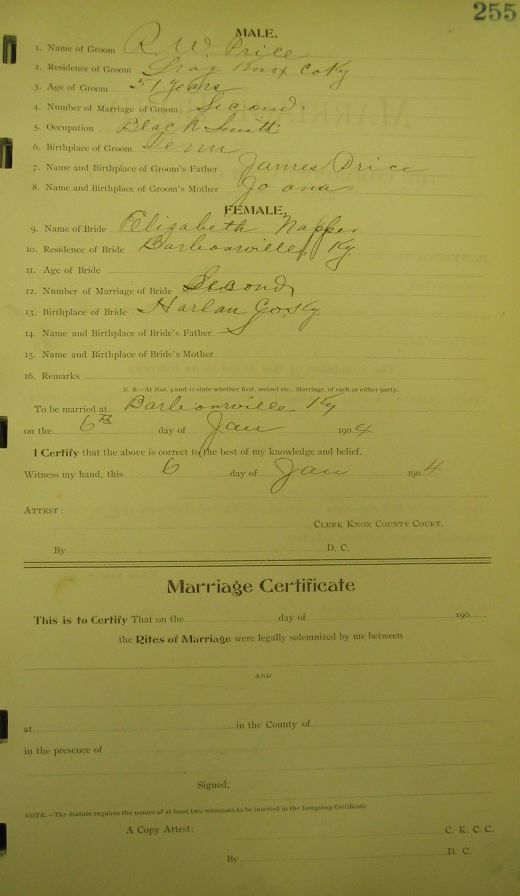 255
MALE.
1. Name of Groom R. W. Price
2. Residence of Groom Gray Knox Co Ky
3. Age of Groom 51 years
4. Number of Marriage of Groom Second
5. Occupation Black Smith
6. Birthplace of Groom Tenn
7. Name and Birthplace of Groom's Father James Price
8. Name and Birthplace of Groom's Mother Jo ona
FEMALE.
9. Name of Bride Elizabeth Napper
10. Residence of Bride Barbourville, Ky.
11. Age of Bride
12. Number of Marriage of Bride Second
13. Birthplace of Bride Harlan Co. Ky
14. Name and Birthplace of Bride's Father
15. Name and Birthplace of Bride's Mother
16. Remarks
N. B.—At Nos. 4 and 12 state whether first, second etc., Marriage, of each or either party.
To be married at Barbourville Ky
on the 6th day of Jan 1904
I Certify that the above is correct to the best of my knowledge and belief.
Witness my hand, this 6 day of Jan 1904
ATTEST:
CLERK KNOX COUNTY COURT.
By D. C.
Marriage Certificate
This is to Certify That on the day of 190
the Rites of Marriage were legally solemnized by me between
AND
at in the County of
in the presence of
Signed,
NOTE.—The Statute requires the names of at least two witnesses to be inserted in the foregoing Certificate.
A Copy Attest: C. K. C. C.
By D. C.